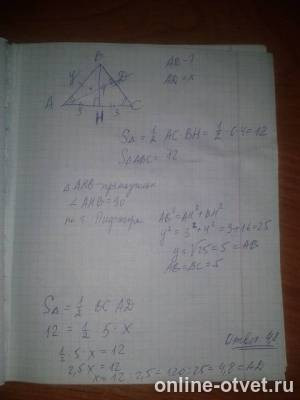 B
y
D
A
3
H
3
C
AB-?
AD-x
S△ = 1/2 AC·BH = 1/2·6·4=12
S△ABC = 12
∠AHB=90°
по т. Пифагора
AB²=AH²+BH²
y²=3²+4²=9+16=25
y=√25=5=AB
AB=BC=5
S△ = 1/2 BC AD
12 = 1/2 · 5 · x
1/2 · 5 · x = 12
2,5x = 12
x = 12 : 2,5 = 120:25 = 4,8 = AD
Ответ 4,8
online-otvet.ru